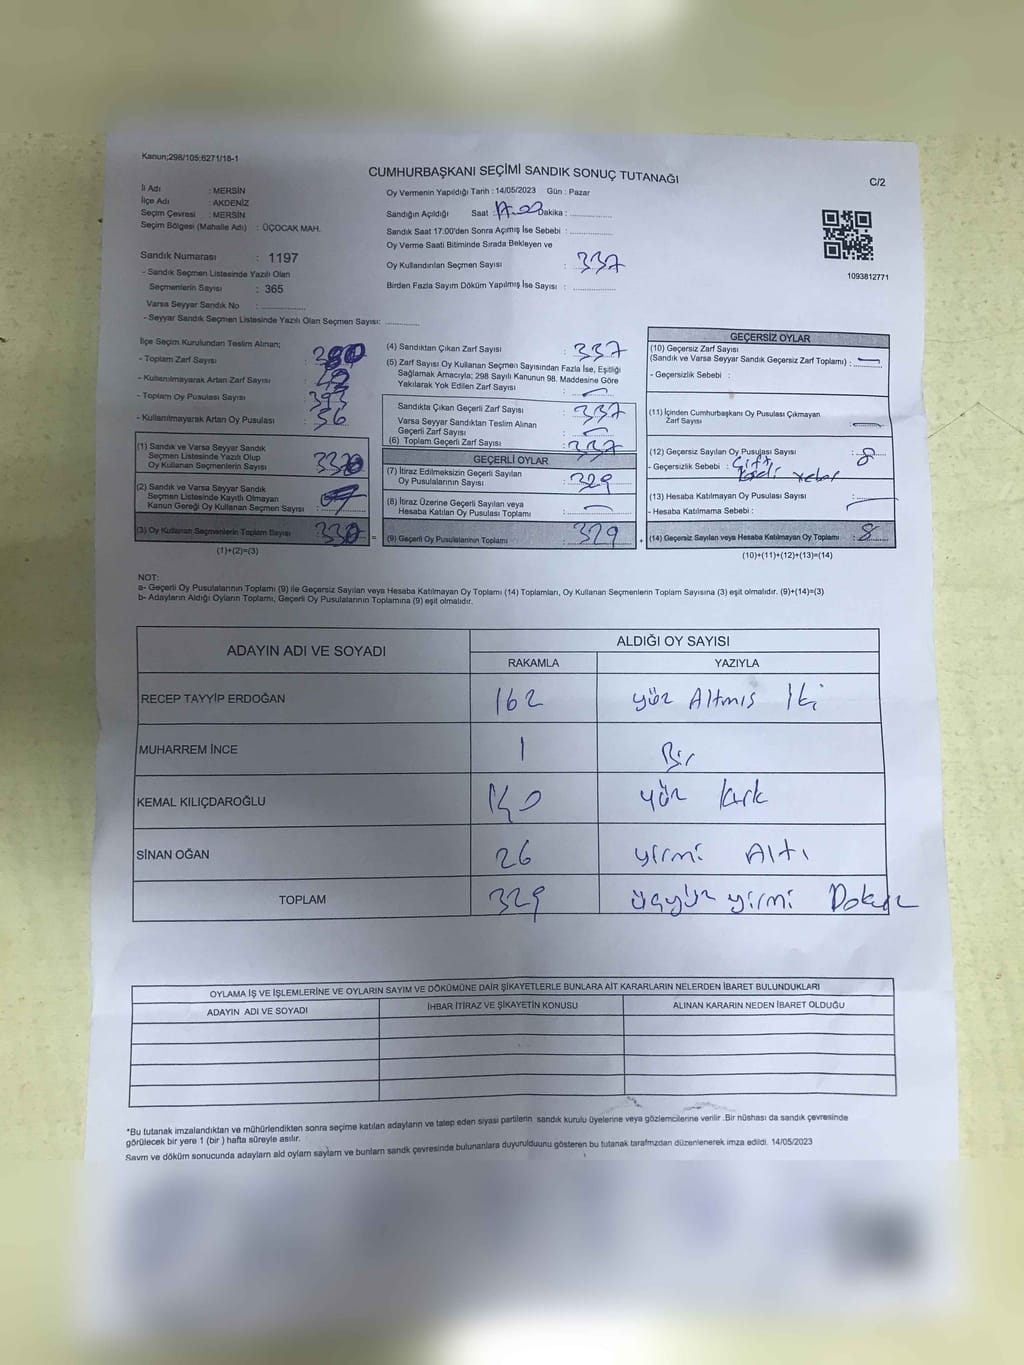 Kanun;298/105;6271/18-1
CUMHURBAŞKANI SEÇİMİ SANDIK SONUÇ TUTANAĞI
C/2
İl Adı : MERSİN
İlçe Adı : AKDENİZ
Seçim Çevresi : MERSİN
Seçim Bölgesi (Mahalle Adı) : ÜÇOCAK MAH.
Sandık Numarası : 1197
- Sandık Seçmen Listesinde Yazılı Olan
Seçmenlerin Sayısı : 365
Varsa Seyyar Sandık No :
- Seyyar Sandık Seçmen Listesinde Yazılı Olan Seçmen Sayısı:
Oy Vermenin Yapıldığı Tarih : 14/05/2023 Gün : Pazar
Sandığın Açıldığı Saat : Dakika :
Sandık Saat 17:00'den Sonra Açımış İse Sebebi :
Oy Verme Saati Bitiminde Sırada Bekleyen ve
Oy Kullandırılan Seçmen Sayısı : 337
Birden Fazla Sayım Döküm Yapılmış İse Sayısı :
1093812771
İlçe Seçim Kurulundan Teslim Alınan;
- Toplam Zarf Sayısı :
- Kullanılmayarak Artan Zarf Sayısı :
- Toplam Oy Pusulası Sayısı : 393
- Kullanılmayarak Artan Oy Pusulası : 56
(1) Sandık ve Varsa Seyyar Sandık
Seçmen Listesinde Yazılı Olup
Oy Kullanan Seçmenlerin Sayısı :
(2) Sandık ve Varsa Seyyar Sandık
Seçmen Listesinde Kayıtlı Olmayan
Kanun Gereği Oy Kullanan Seçmen Sayısı :
(3) Oy Kullanan Seçmenlerin Toplam Sayısı :
(1)+(2)=(3)
(4) Sandıktan Çıkan Zarf Sayısı : 337
(5) Zarf Sayısı Oy Kullanan Seçmen Sayısından Fazla İse, Eşitliği
Sağlamak Amacıyla; 298 Sayılı Kanunun 98. Maddesine Göre
Yakılarak Yok Edilen Zarf Sayısı : —
Sandıkta Çıkan Geçerli Zarf Sayısı : 337
Varsa Seyyar Sandıktan Teslim Alınan
Geçerli Zarf Sayısı : —
(6) Toplam Geçerli Zarf Sayısı : 337
GEÇERLİ OYLAR
(7) İtiraz Edilmeksizin Geçerli Sayılan
Oy Pusulalarının Sayısı : 329
(8) İtiraz Üzerine Geçerli Sayılan veya
Hesaba Katılan Oy Pusulası Toplamı : —
= (9) Geçerli Oy Pusulalarının Toplamı : 329 +
GEÇERSİZ OYLAR
(10) Geçersiz Zarf Sayısı
(Sandık ve Varsa Seyyar Sandık Geçersiz Zarf Toplamı) : —
- Geçersizlik Sebebi :
(11) İçinden Cumhurbaşkanı Oy Pusulası Çıkmayan
Zarf Sayısı : —
(12) Geçersiz Sayılan Oy Pusulası Sayısı : 8
- Geçersizlik Sebebi : Çift
(13) Hesaba Katılmayan Oy Pusulası Sayısı : —
- Hesaba Katılmama Sebebi :
(14) Geçersiz Sayılan veya Hesaba Katılmayan Oy Toplamı : 8
(10)+(11)+(12)+(13)=(14)
NOT:
a- Geçerli Oy Pusulalarının Toplamı (9) ile Geçersiz Sayılan veya Hesaba Katılmayan Oy Toplamı (14) Toplamları, Oy Kullanan Seçmenlerin Toplam Sayısına (3) eşit olmalıdır. (9)+(14)=(3)
b- Adayların Aldığı Oyların Toplamı, Geçerli Oy Pusulalarının Toplamına (9) eşit olmalıdır.
ADAYIN ADI VE SOYADI
ALDIĞI OY SAYISI
RAKAMLA YAZIYLA
RECEP TAYYİP ERDOĞAN 162 yüz Altmış İki
MUHARREM İNCE 1 Bir
KEMAL KILIÇDAROĞLU 140 yüz kırk
SİNAN OĞAN 26 yirmi Altı
TOPLAM 329 üçyüz yirmi Dokuz
OYLAMA İŞ VE İŞLEMLERİNE VE OYLARIN SAYIM VE DÖKÜMÜNE DAİR ŞİKAYETLERLE BUNLARA AİT KARARLARIN NELERDEN İBARET BULUNDUKLARI
ADAYIN ADI VE SOYADI İHBAR İTİRAZ VE ŞİKAYETİN KONUSU ALINAN KARARIN NEDEN İBARET OLDUĞU
*Bu tutanak imzalandıktan ve mühürlendikten sonra seçime katılan adayların ve talep eden siyasi partilerin sandık kurulu üyelerine veya gözlemcilerine verilir .Bir nüshası da sandık çevresinde
görülecek bir yere 1 (bir ) hafta süreyle asılır.
Sayım ve döküm sonucunda adayların ald oyların sayların ve bunların sandk çevresinde bulunanlara duyurulduunu gösteren bu tutanak tarafmzdan düzenlenerek imza edildi. 14/05/2023